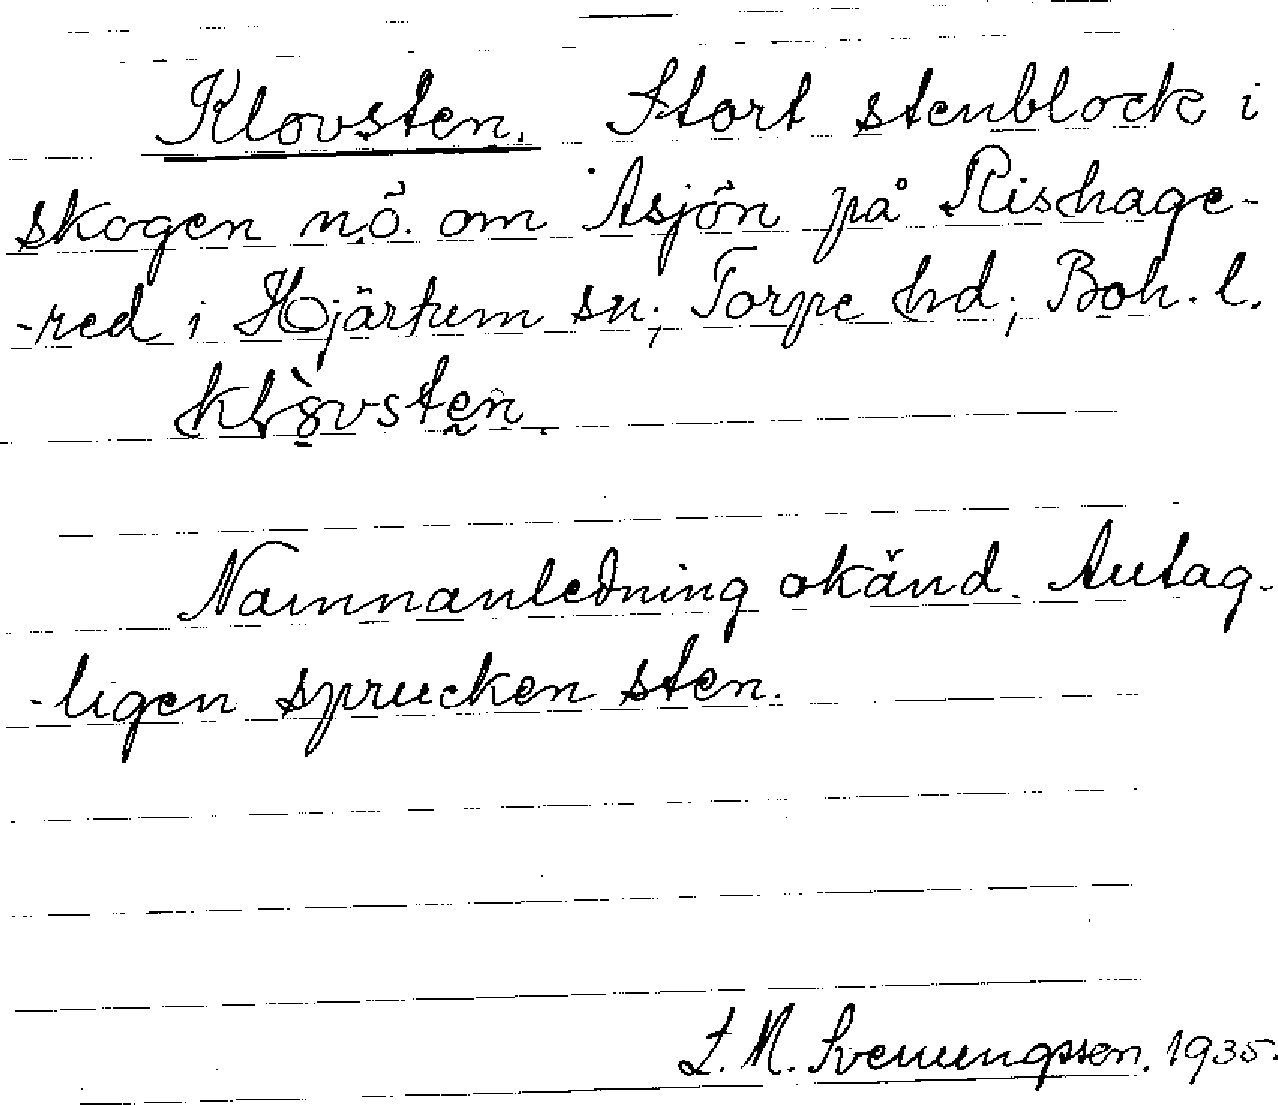 Klovsten. Stort stenblock i
skogen n.ö. om Asjön på Rishage-
-red i Hjärtum sn; Torpe hd; Boh. l.
Namnanledning okänd. Antag-
-ligen sprucken sten.
L. M. Svenungsson. 1935.